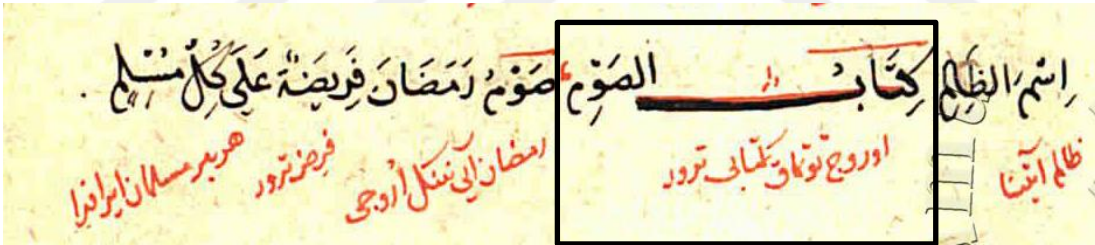 اِسْمَ الظالِمِ كِتَابُ الصَوْمِ صَوْمُ رَمَضَانَ فَرِيضَةٌ عَلَى كُلِّ مُسْلِمٍ .
ظالم آتينا اوروج توتماق كتابى ترور رمضان آى ننكل اُروجى فرض ترور هر بر مسلمان ايرانرا